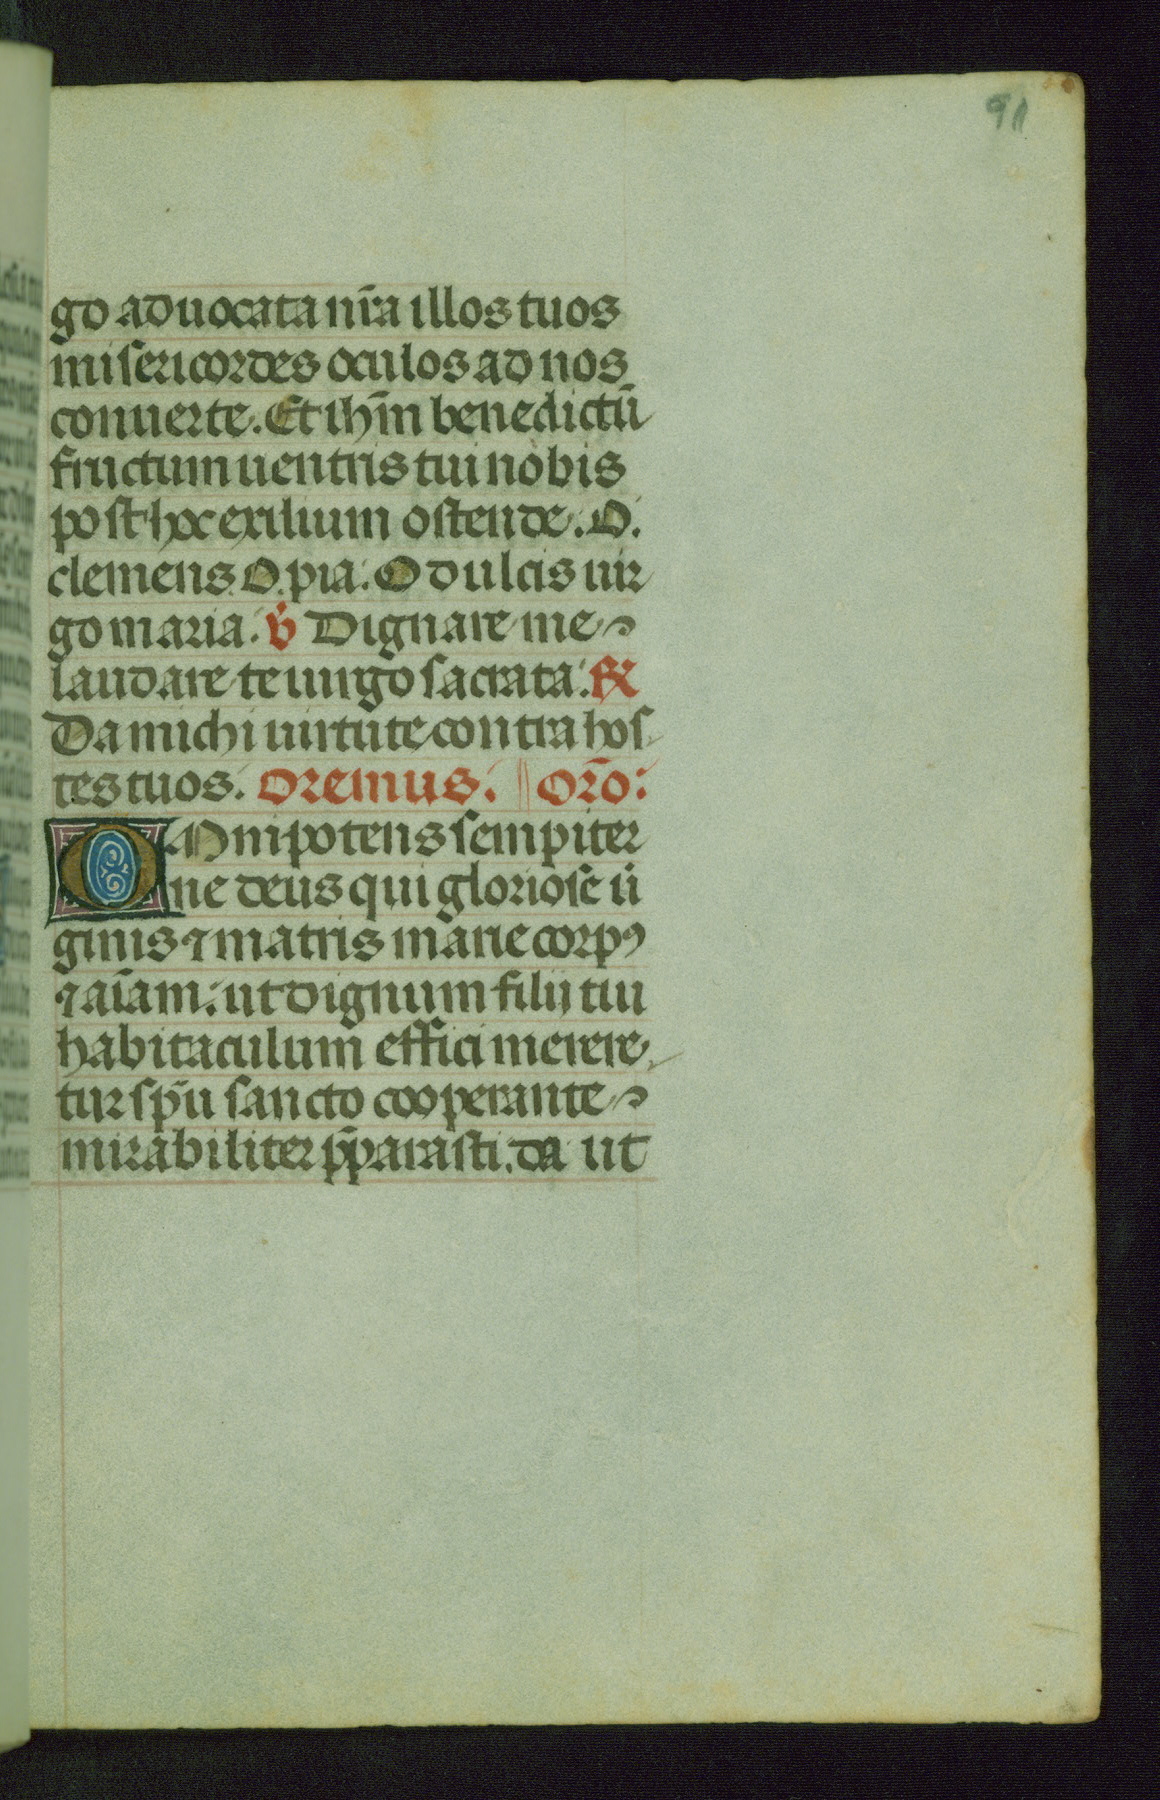 91
go aduocata nr̄a illos tuos
misericordes oculos ad nos
conuerte. Et ihm̄ benedictū
fructum uentris tui nobis
post hoc exilium ostende. O.
clemens. O. pia. O dulcis uir
go maria. v̄ Dignare me
laudare te uirgo sacrata. ℟
Da michi uirtute contra hos
tes tuos. Oremus. Or̄o:
Omnipotens sempiter
ne deus qui gloriose ū
ginis ⁊ matris marie corpꝰ
⁊ aīam. ut dignum filij tui
habitaculum effici merere
tur sp̄u sancto cooperante
mirabiliter p̄parasti. da ut